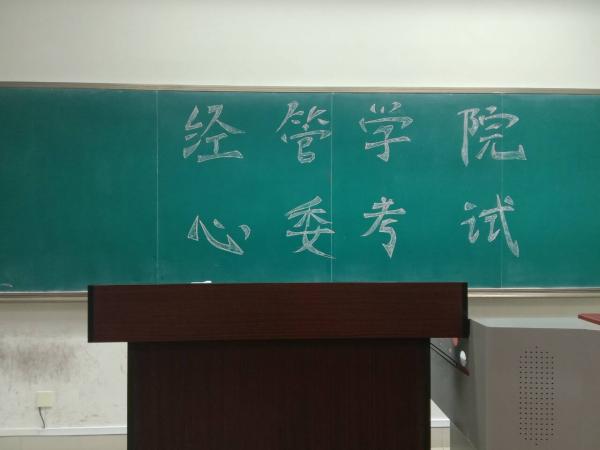 经管学院
心委考试